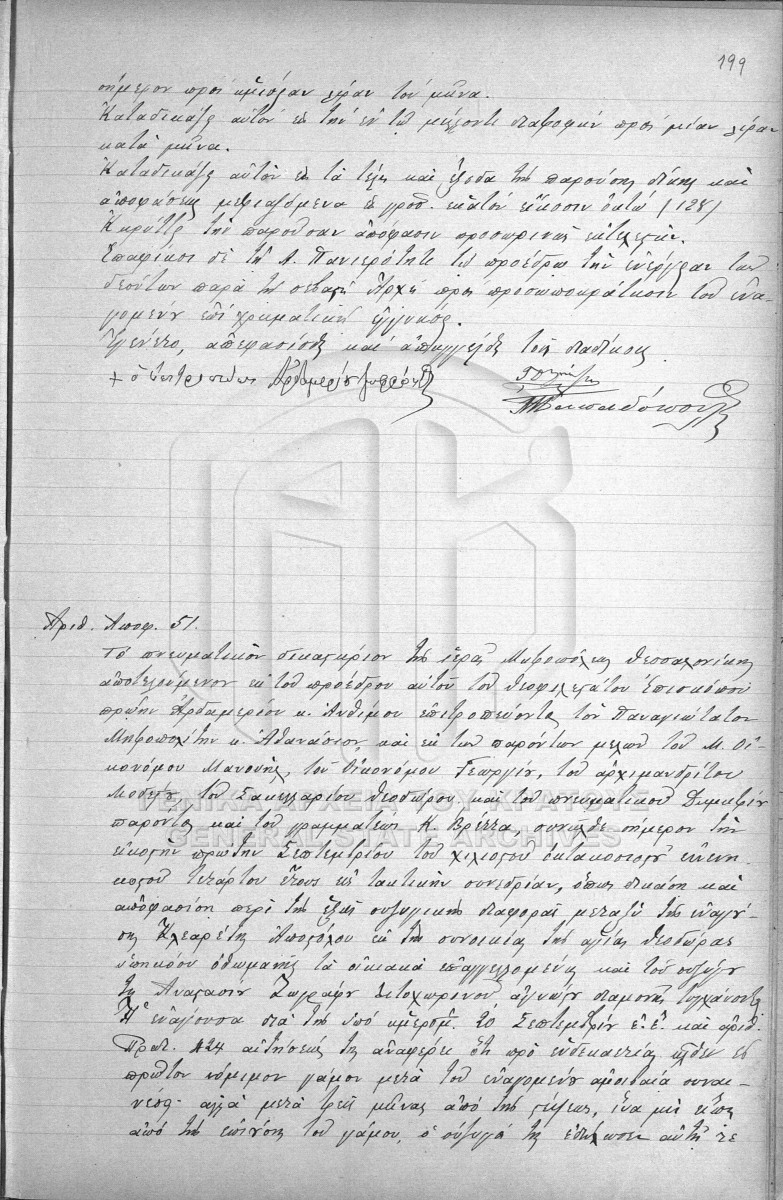 199
σήμερον πρὸς ἡμίσειαν λίραν τὸν μῆνα.
Καταδικάζει αὐτὸν εἰς τὴν ἐν τῷ μέλλοντι διατροφὴν πρὸς μίαν λίραν
κατὰ μῆνα.
Καταδικάζει αὐτὸν εἰς τὰ τέλη καὶ ἔξοδα τῆς παρούσης δίκης καὶ
ἀποφάσεως εἰς γρόσ. ἑκατὸν εἴκοσιν ὀκτώ (128)
Κηρύττει τὴν παροῦσαν ἀπόφασιν προσωρινῶς ἐκτελεστήν.
δὲ τῇ Α. Πανιερότητι τῷ προέδρῳ τὴν ἐνέργειαν τῶν
δεόντων παρὰ τῇ σεβαστῇ Ἀρχῇ πρὸς προσωποκράτησιν τοῦ ἐνα-
γομένου ἐπὶ χρηματικῇ ἐγγυήσει.
Ἐγένετο, ἀπεφασίσθη καὶ ἀπηγγέλθη τοῖς διαδίκοις.
+ ὁ ἐπιτροπεύων
Παπαδόπουλος
Ἀριθ. Ἀποφ. 51.
Τὸ πνευματικὸν δικαστήριον τῆς ἱερᾶς Μητροπόλεως Θεσσαλονίκης
ἀποτελούμενον ἐκ τοῦ προέδρου αὐτοῦ τοῦ θεοφιλεστάτου ἐπισκόπου
πρώην Ἀρδαμερίου κ. Ἀνθίμου ἐπιτροπεύοντος τὸν Παναγιώτατον
Μητροπολίτην κ. Ἀθανάσιον, καὶ ἐκ τῶν παρόντων μελῶν τοῦ Μ. Οἰ-
κονόμου Μανουὴλ, τοῦ Οἰκονόμου Γεωργίου, τοῦ ἀρχιμανδρίτου
Μοδέστου, τοῦ Σακελλαρίου Θεοδώρου καὶ τοῦ πνευματικοῦ
παρόντος καὶ τοῦ γραμματέως Κ. Βρέττα συνῆλθε σήμερον τὴν
εἰκοστὴν πρώτην Σεπτεμβρίου τοῦ χιλιοστοῦ ὀκτακοσιοστοῦ ἐνενη-
κοστοῦ τετάρτου ἔτους εἰς τακτικὴν συνεδρίαν, ὅπως δικάσῃ καὶ
ἀποφασίσῃ περὶ τῆς ἑξῆς συζυγικῆς διαφορᾶς μεταξὺ τῆς ἐναγού-
σης Κλεαρέτης Ἀποστόλου ἐκ τῆς συνοικίας τῆς ἁγίας Θεοδώρας
ὑπηκόου ὀθωμανῆς τὰ οἰκιακὰ ἐπαγγελλομένης καὶ τοῦ συζύγου
της Ἀναστασίου Ζωγράφου ἀγνώστου διαμονῆς τυγχάνοντος
Ἡ ἐνάγουσα διὰ τῆς ὑπὸ ἡμερομ. 20 Σεπτεμβρίου ἐ.ἔ. καὶ ἀριθ.
Πρωτ. 424 αἰτήσεώς της ἀναφέρει ὅτι πρὸ ἑνδεκαετίας ἦλθεν εἰς
πρῶτον νόμιμον γάμον μετὰ τοῦ ἐναγομένου ἀμοιβαίᾳ συναι-
νέσει· ἀλλὰ μετὰ τρεῖς μῆνας ἀπὸ τῆς στέψεως, ἵνα μὴ εἴπῃ
ἀπὸ τῆς ἐπιούσης τοῦ γάμου, ὁ σύζυγός της ἐδήλωσεν αὐτῇ
ΓΕΝΙΚΑ ΑΡΧΕΙΑ ΤΟΥ ΚΡΑΤΟΥΣ
GENERAL STATE ARCHIVES